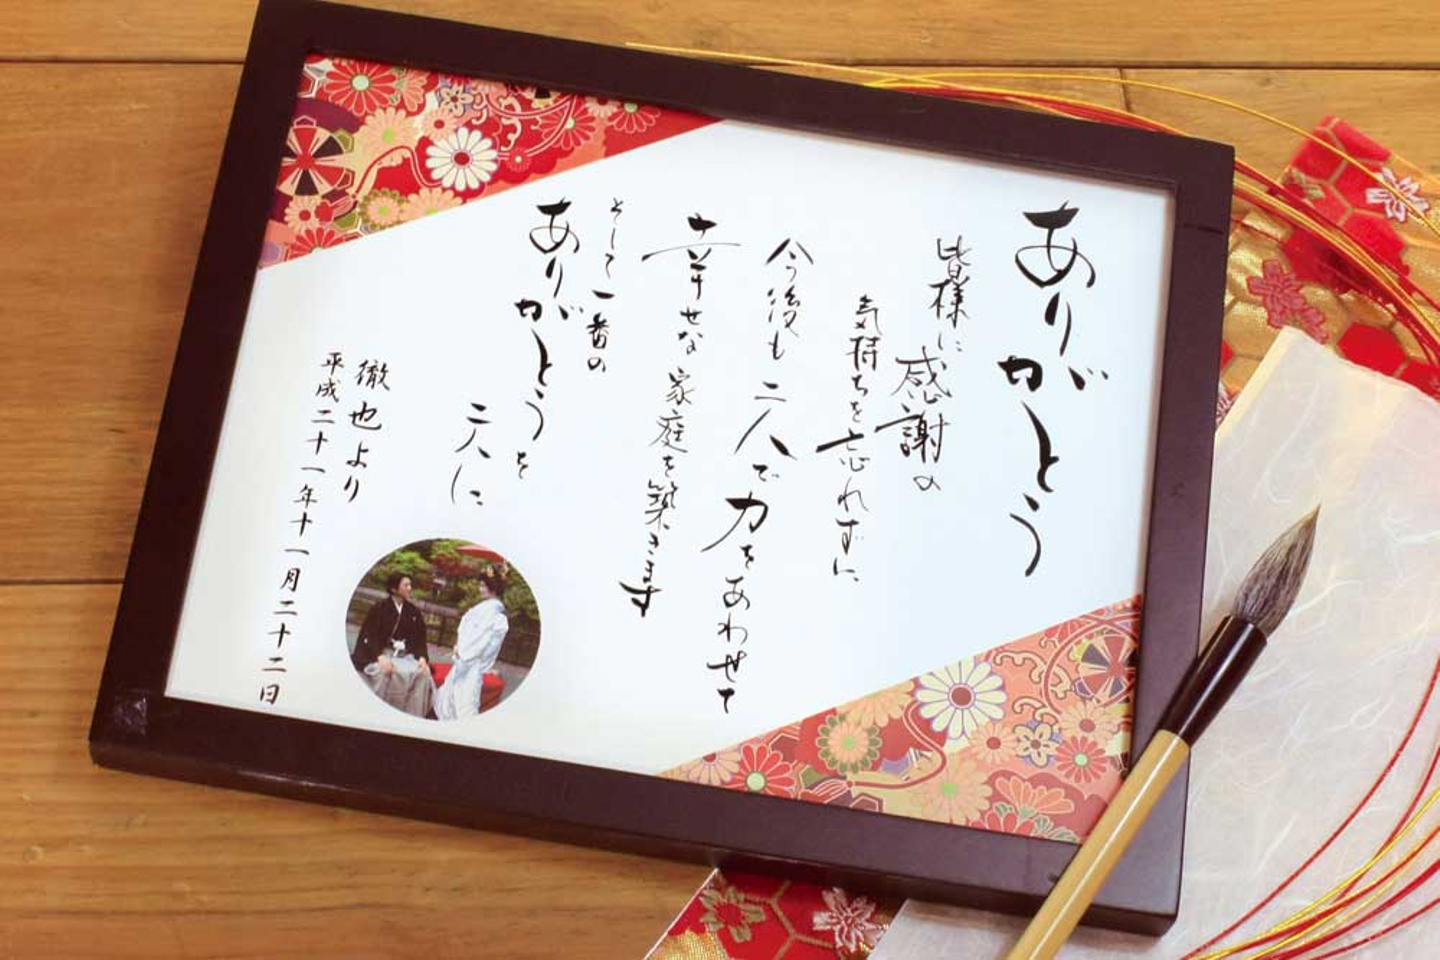 ありがとう
皆様に感謝の
気持ちを忘れずに、
今後も二人で力をあわせて
幸せな家庭を築きます
そして一番の
ありがとうを
二人に
徹也より
平成二十一年十一月二十二日